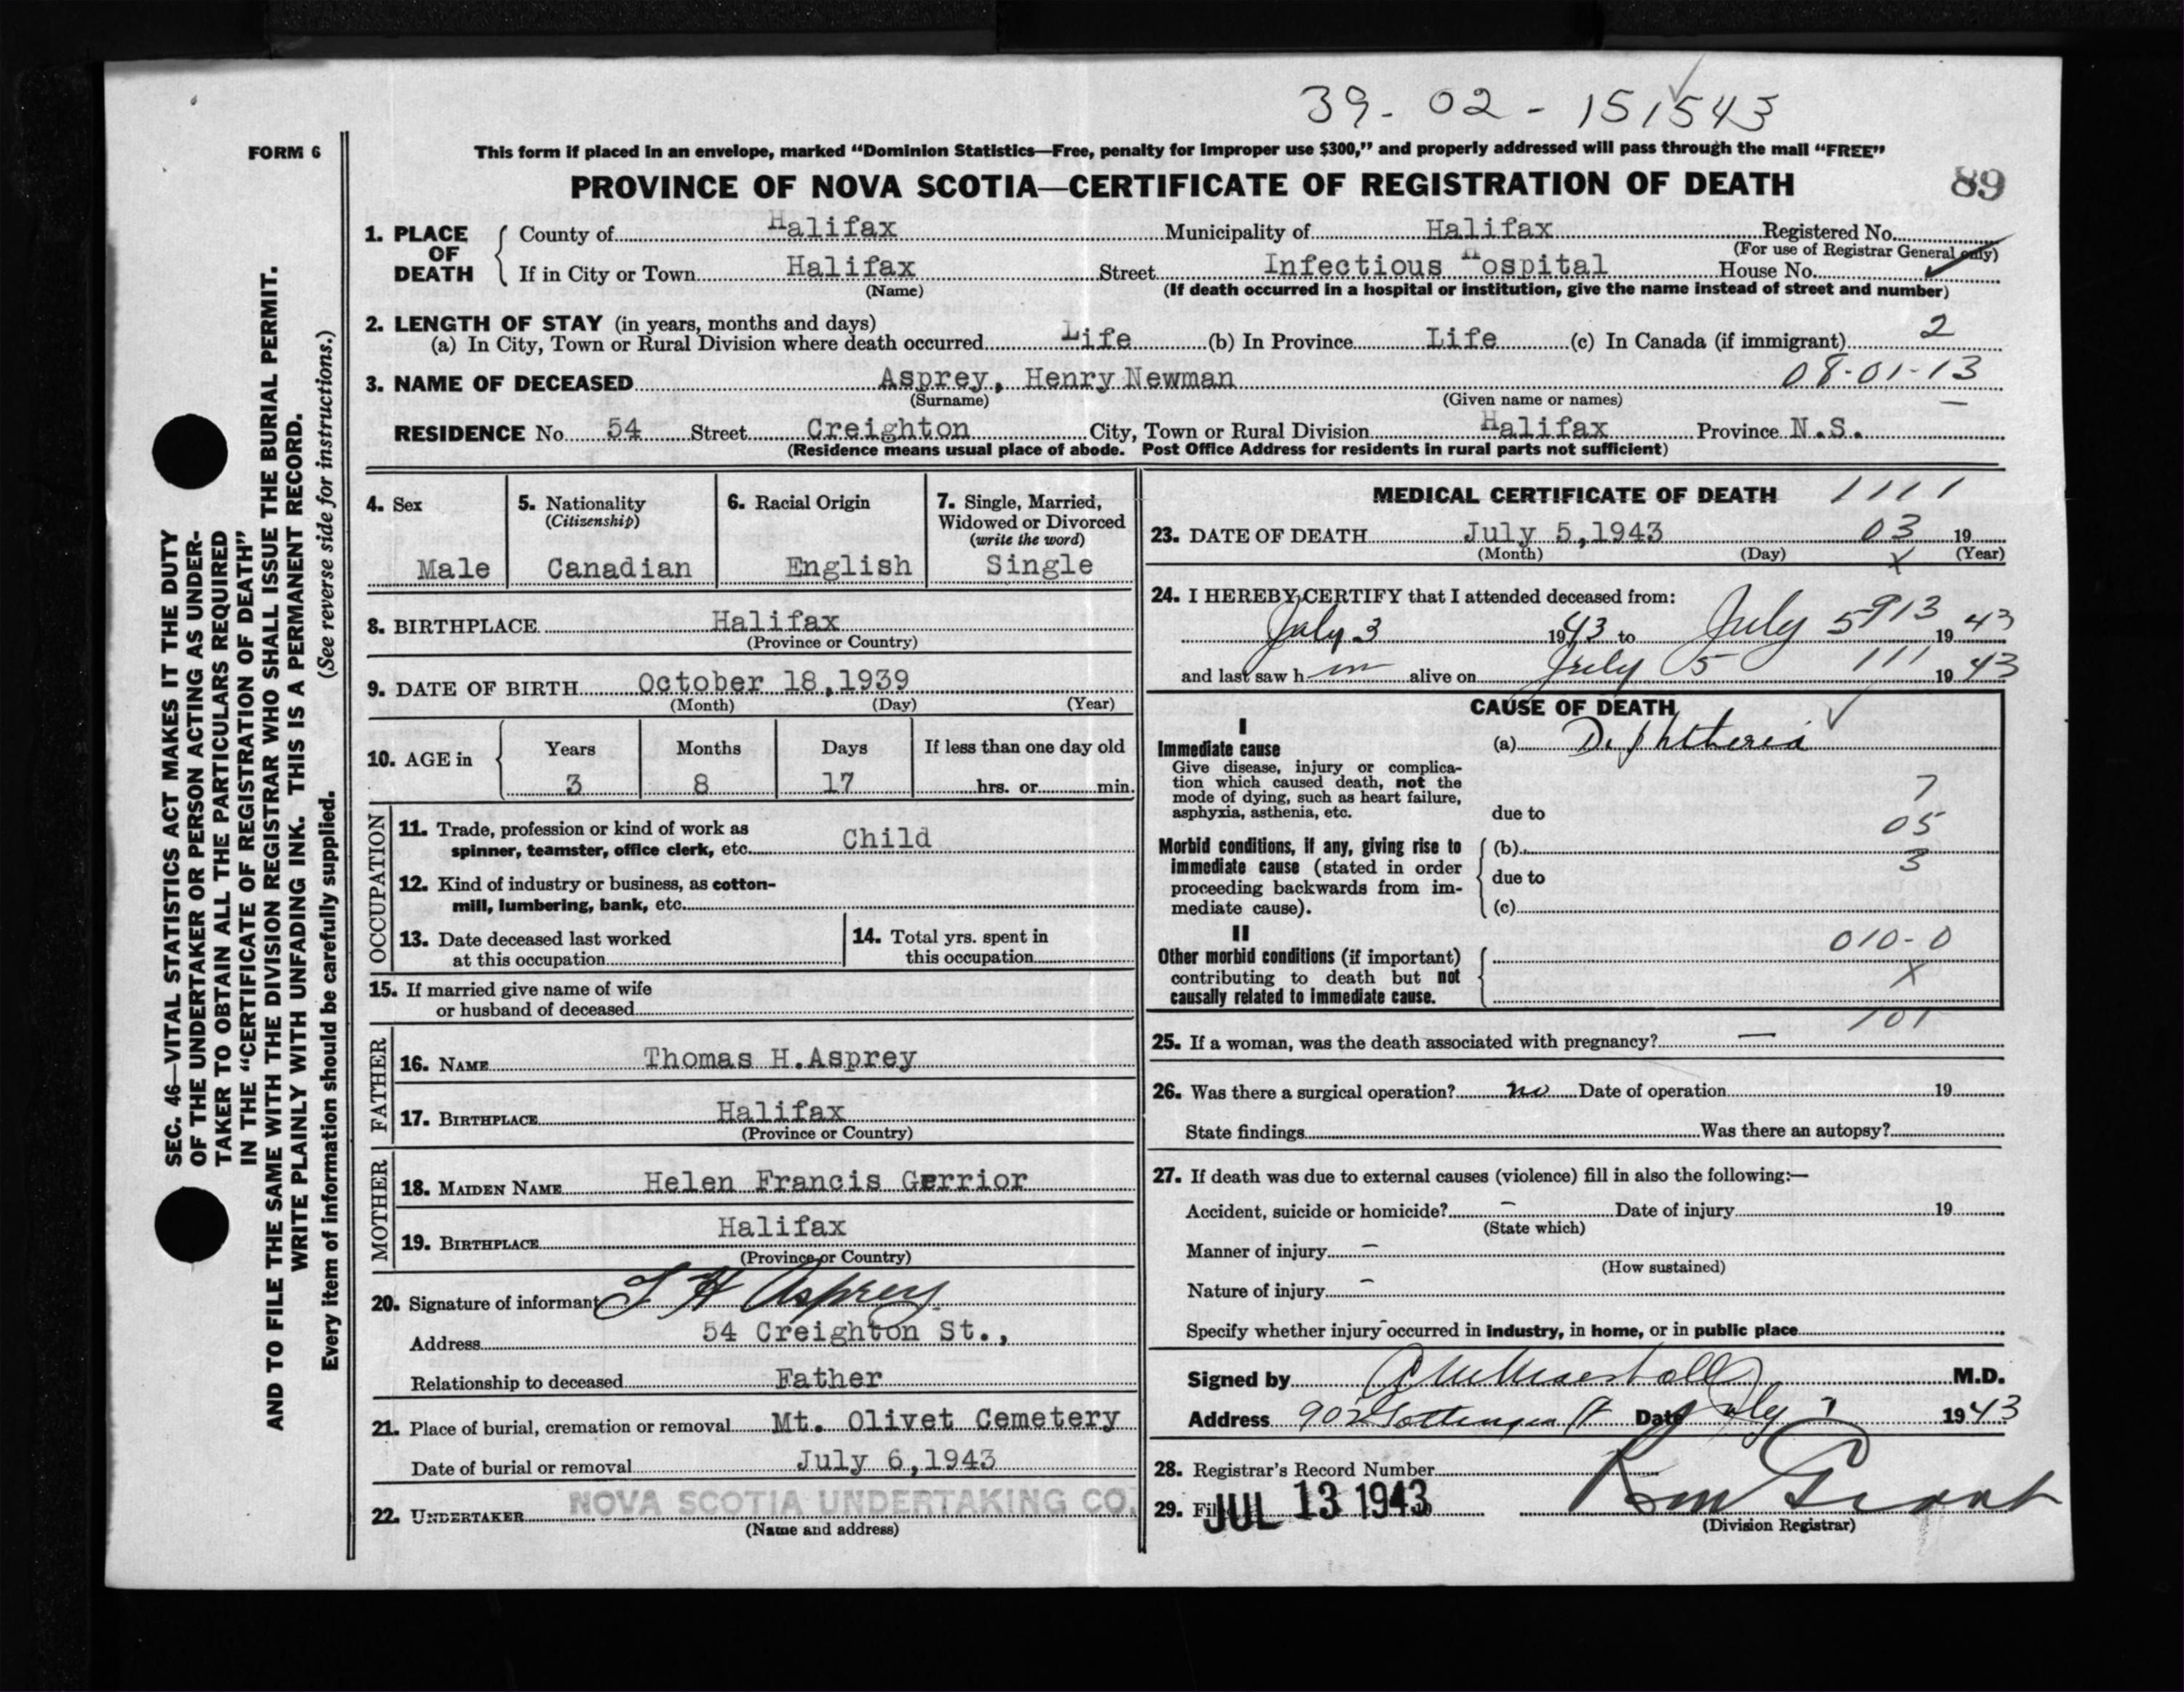 39-02-151543
FORM 6
This form if placed in an envelope, marked “Dominion Statistics—Free, penalty for improper use $300,” and properly addressed will pass through the mail “FREE”
PROVINCE OF NOVA SCOTIA—CERTIFICATE OF REGISTRATION OF DEATH
89
1. PLACE OF DEATH
County of Halifax Municipality of Halifax Registered No.
(For use of Registrar General only)
If in City or Town Halifax Street Infectious Hospital House No.
(Name) (If death occurred in a hospital or institution, give the name instead of street and number)
2. LENGTH OF STAY (in years, months and days)
(a) In City, Town or Rural Division where death occurred Life (b) In Province Life (c) In Canada (if immigrant) 2
3. NAME OF DECEASED Asprey, Henry Newman 08-01-13
(Surname) (Given name or names)
RESIDENCE No. 54 Street Creighton City, Town or Rural Division Halifax Province N.S.
(Residence means usual place of abode. Post Office Address for residents in rural parts not sufficient)
4. Sex
Male
5. Nationality
(Citizenship)
Canadian
6. Racial Origin
English
7. Single, Married,
Widowed or Divorced
(write the word)
Single
8. BIRTHPLACE Halifax
(Province or Country)
9. DATE OF BIRTH October 18,1939
(Month) (Day) (Year)
10. AGE in
Years Months Days If less than one day old
3 8 17 hrs. or min.
OCCUPATION
11. Trade, profession or kind of work as
spinner, teamster, office clerk, etc. Child
12. Kind of industry or business, as cotton-
mill, lumbering, bank, etc.
13. Date deceased last worked
at this occupation
14. Total yrs. spent in
this occupation
15. If married give name of wife
or husband of deceased
FATHER
16. NAME Thomas H.Asprey
17. BIRTHPLACE Halifax
(Province or Country)
MOTHER
18. MAIDEN NAME Helen Francis Gerrior
19. BIRTHPLACE Halifax
(Province or Country)
20. Signature of informant T H Asprey
Address 54 Creighton St.,
Relationship to deceased Father
21. Place of burial, cremation or removal Mt. Olivet Cemetery
Date of burial or removal July 6,1943
22. UNDERTAKER NOVA SCOTIA UNDERTAKING CO.
(Name and address)
MEDICAL CERTIFICATE OF DEATH 1111
23. DATE OF DEATH July 5,1943 03 19
(Month) (Day) X (Year)
24. I HEREBY CERTIFY that I attended deceased from:
July 3 1943 to July 5 913 1943
and last saw h im alive on July 5 111 1943
CAUSE OF DEATH
I
Immediate cause (a) Diphtheria
Give disease, injury or complica-
tion which caused death, not the
mode of dying, such as heart failure,
asphyxia, asthenia, etc.
7
due to
05
Morbid conditions, if any, giving rise to
immediate cause (stated in order
proceeding backwards from im-
mediate cause).
(b)
3
due to
(c)
II
Other morbid conditions (if important)
contributing to death but not
causally related to immediate cause.
010-0
X
101
25. If a woman, was the death associated with pregnancy? —
26. Was there a surgical operation? no Date of operation 19
State findings Was there an autopsy?
27. If death was due to external causes (violence) fill in also the following:—
Accident, suicide or homicide? – Date of injury 19
(State which)
Manner of injury –
(How sustained)
Nature of injury –
Specify whether injury occurred in industry, in home, or in public place
Signed by M.D.
Address 902 Gottingen St Date July 7 1943
28. Registrar's Record Number
29. Fil JUL 13 1943
(Division Registrar)
SEC. 46—VITAL STATISTICS ACT MAKES IT THE DUTY
OF THE UNDERTAKER OR PERSON ACTING AS UNDER-
TAKER TO OBTAIN ALL THE PARTICULARS REQUIRED
IN THE “CERTIFICATE OF REGISTRATION OF DEATH”
AND TO FILE THE SAME WITH THE DIVISION REGISTRAR WHO SHALL ISSUE THE BURIAL PERMIT.
WRITE PLAINLY WITH UNFADING INK. THIS IS A PERMANENT RECORD.
Every item of information should be carefully supplied. (See reverse side for instructions.)